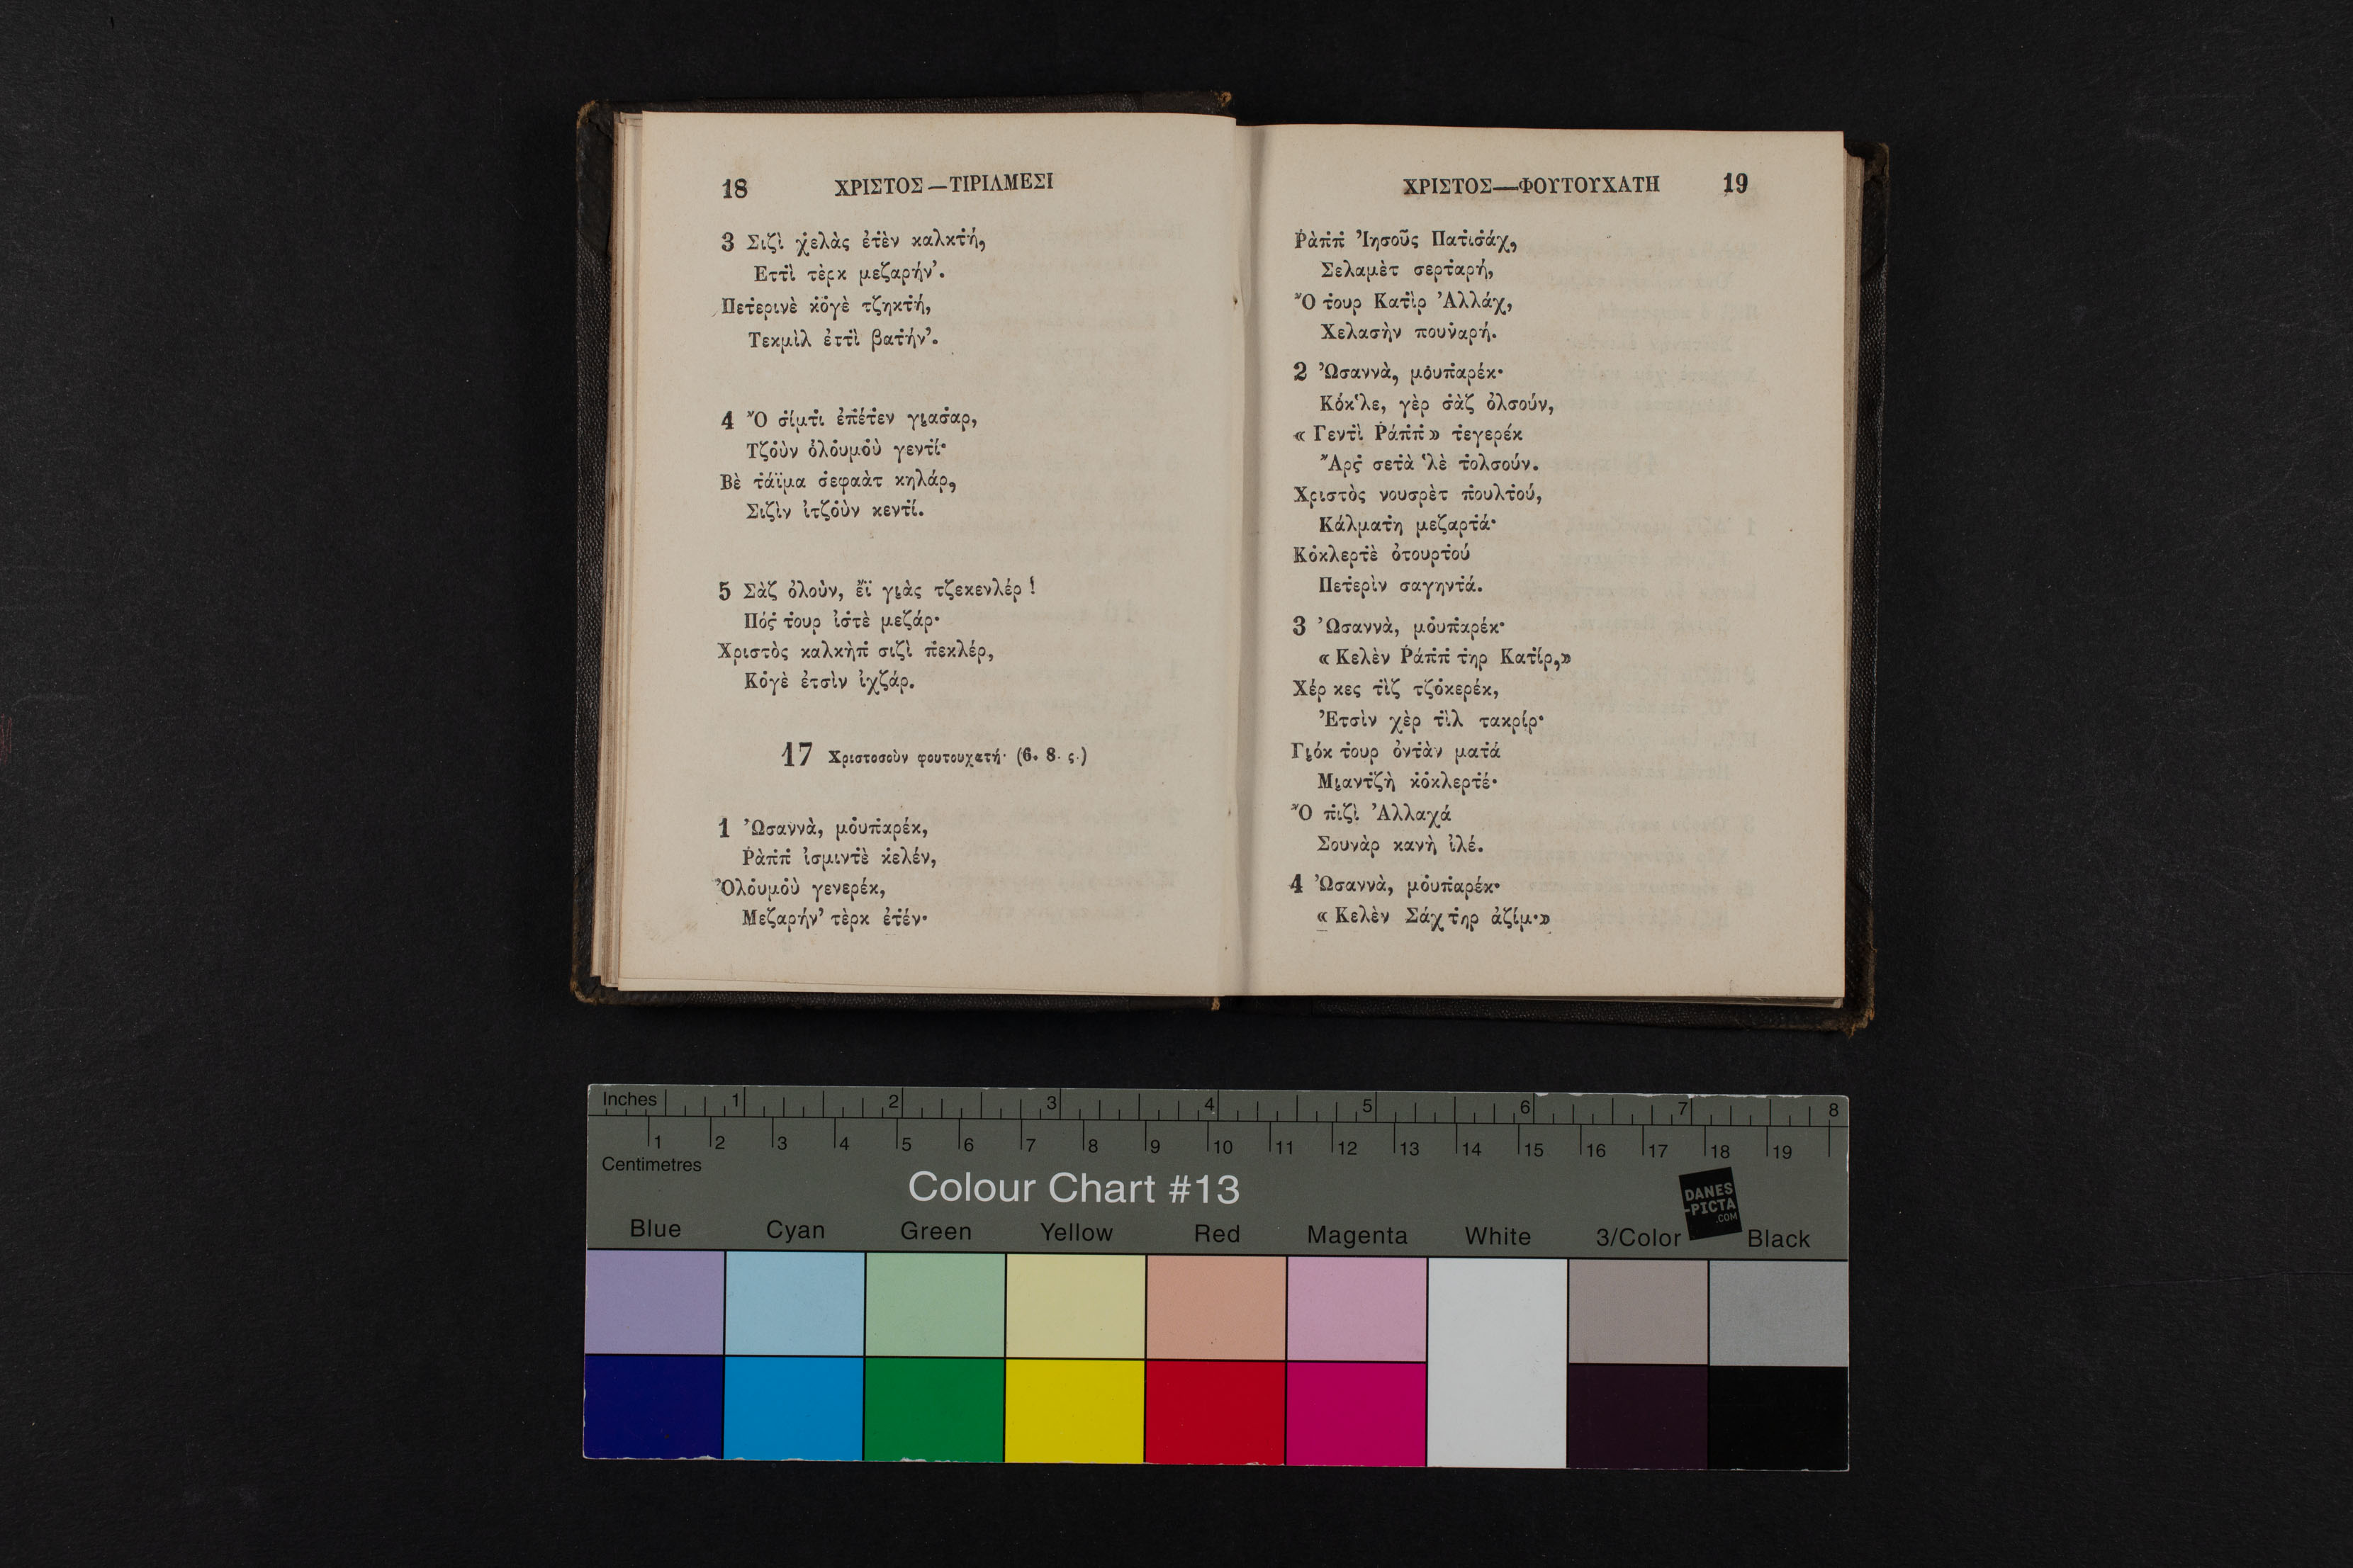 18 ΧΡΙΣΤΟΣ — ΤΙΡΙΛΜΕΣΙ
3 Σιζὶ χ̇ελὰς ἐτ̇ὲν καλκτ̇ή,
Εττ̇ὶ τὲρκ μεζαρήν’.
Πετ̇ερινὲ κ̇ὀγὲ τζηκτ̇ή,
Τεκμὶλ ἐττ̇ὶ βατ̇ήν’.
4 Ὂ σ̇ίμτ̇ι ἐπ̇έτ̇εν γιασ̇αρ,
Τζο̇ὺν ὀλο̇υμο̇ὺ γεντ̇ί·
Βὲ τ̇άϊμα σ̇εφαὰτ κηλάρ,
Σιζὶν ἰτζο̇ὺν κεντ̇ί.
5 Σὰζ ὀλοὺν, ἔϊ γιὰς τζεκενλέρ !
Πός̇ τ̇ουρ ἰσ̇τὲ μεζάρ·
Χριστὸς καλκὴπ̇ σιζὶ π̇εκλέρ,
Κὀγὲ ἐτσὶν ἰχζάρ.
17 Χριστοσοὺν φουτουχατή· (6. 8. ς.)
1 Ὠσαννὰ, μο̇υπ̇αρέκ,
Ῥὰπ̇π̇ ἰσμιντ̇ὲ κ̇ελέν,
Ὀλο̇υμο̇ὺ γενερέκ,
Μεζαρήν’ τὲρκ ἐτ̇έν·
ΧΡΙΣΤΟΣ—ΦΟΥΤΟΥΧΑΤΗ 19
Ῥὰπ̇π̇ Ἰησοῦς Πατ̇ισ̇άχ,
Σελαμὲτ σερτ̇αρή,
Ὂ τ̇ουρ Κατ̇ὶρ Ἀλλάχ,
Χελασὴν πουν̇αρή.
2 Ὠσαννὰ, μο̇υπ̇αρέκ·
Κόκ‛λε, γὲρ σ̇ὰζ ὀλσούν,
« Γεντ̇ὶ Ῥάπ̇π̇ » τ̇εγερέκ
Ἄρς̇ σετ̇ὰ ‛λὲ τ̇ολσούν.
Χριστὸς νουσρὲτ π̇ουλτ̇ού,
Κάλματ̇η μεζαρτ̇ά·
Κὀκλερτ̇ὲ ὀτουρτ̇ού
Πετ̇ερὶν σαγηντ̇ά.
3 Ὠσαννὰ, μο̇υπ̇αρέκ·
« Κελὲν Ῥάπ̇π̇ τ̇ηρ Κατ̇ίρ,»
Χέρ κες τ̇ὶζ τζὀκερέκ,
Ἐτσὶν χὲρ τ̇ὶλ τακρίρ·
Γιόκ τ̇ουρ ὀντ̇ὰν ματ̇ά
Μιαντζ̇ὴ κ̇ὀκλερτ̇έ·
Ὂ π̇ιζὶ Ἀλλαχά
Σουνὰρ κανὴ ἰλέ.
4 Ὠσαννὰ, μο̇υπ̇αρέκ·
« Κελὲν Σάχ τ̇ηρ ἀζίμ·»
Inches 1 2 3 4 5 6 7 8
1 2 3 4 5 6 7 8 9 10 11 12 13 14 15 16 17 18 19
Centimetres
Colour Chart #13
DANES
-PICTA
.COM
Blue Cyan Green Yellow Red Magenta White 3/Color Black